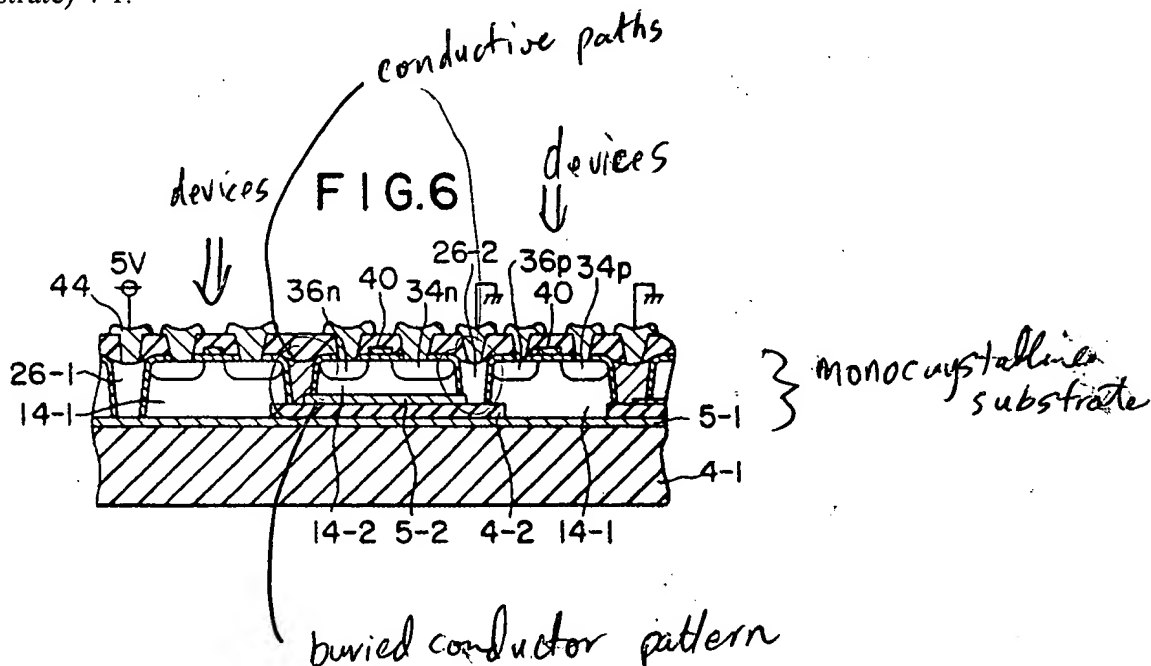 conductive paths
devices
FIG.6
devices
5V
44
36n
40
34n
26-2
36p
34p
40
26-1
14-1
monocrystalline
substrate
5-1
4-1
14-2
5-2
4-2
14-1
buried conductor pattern